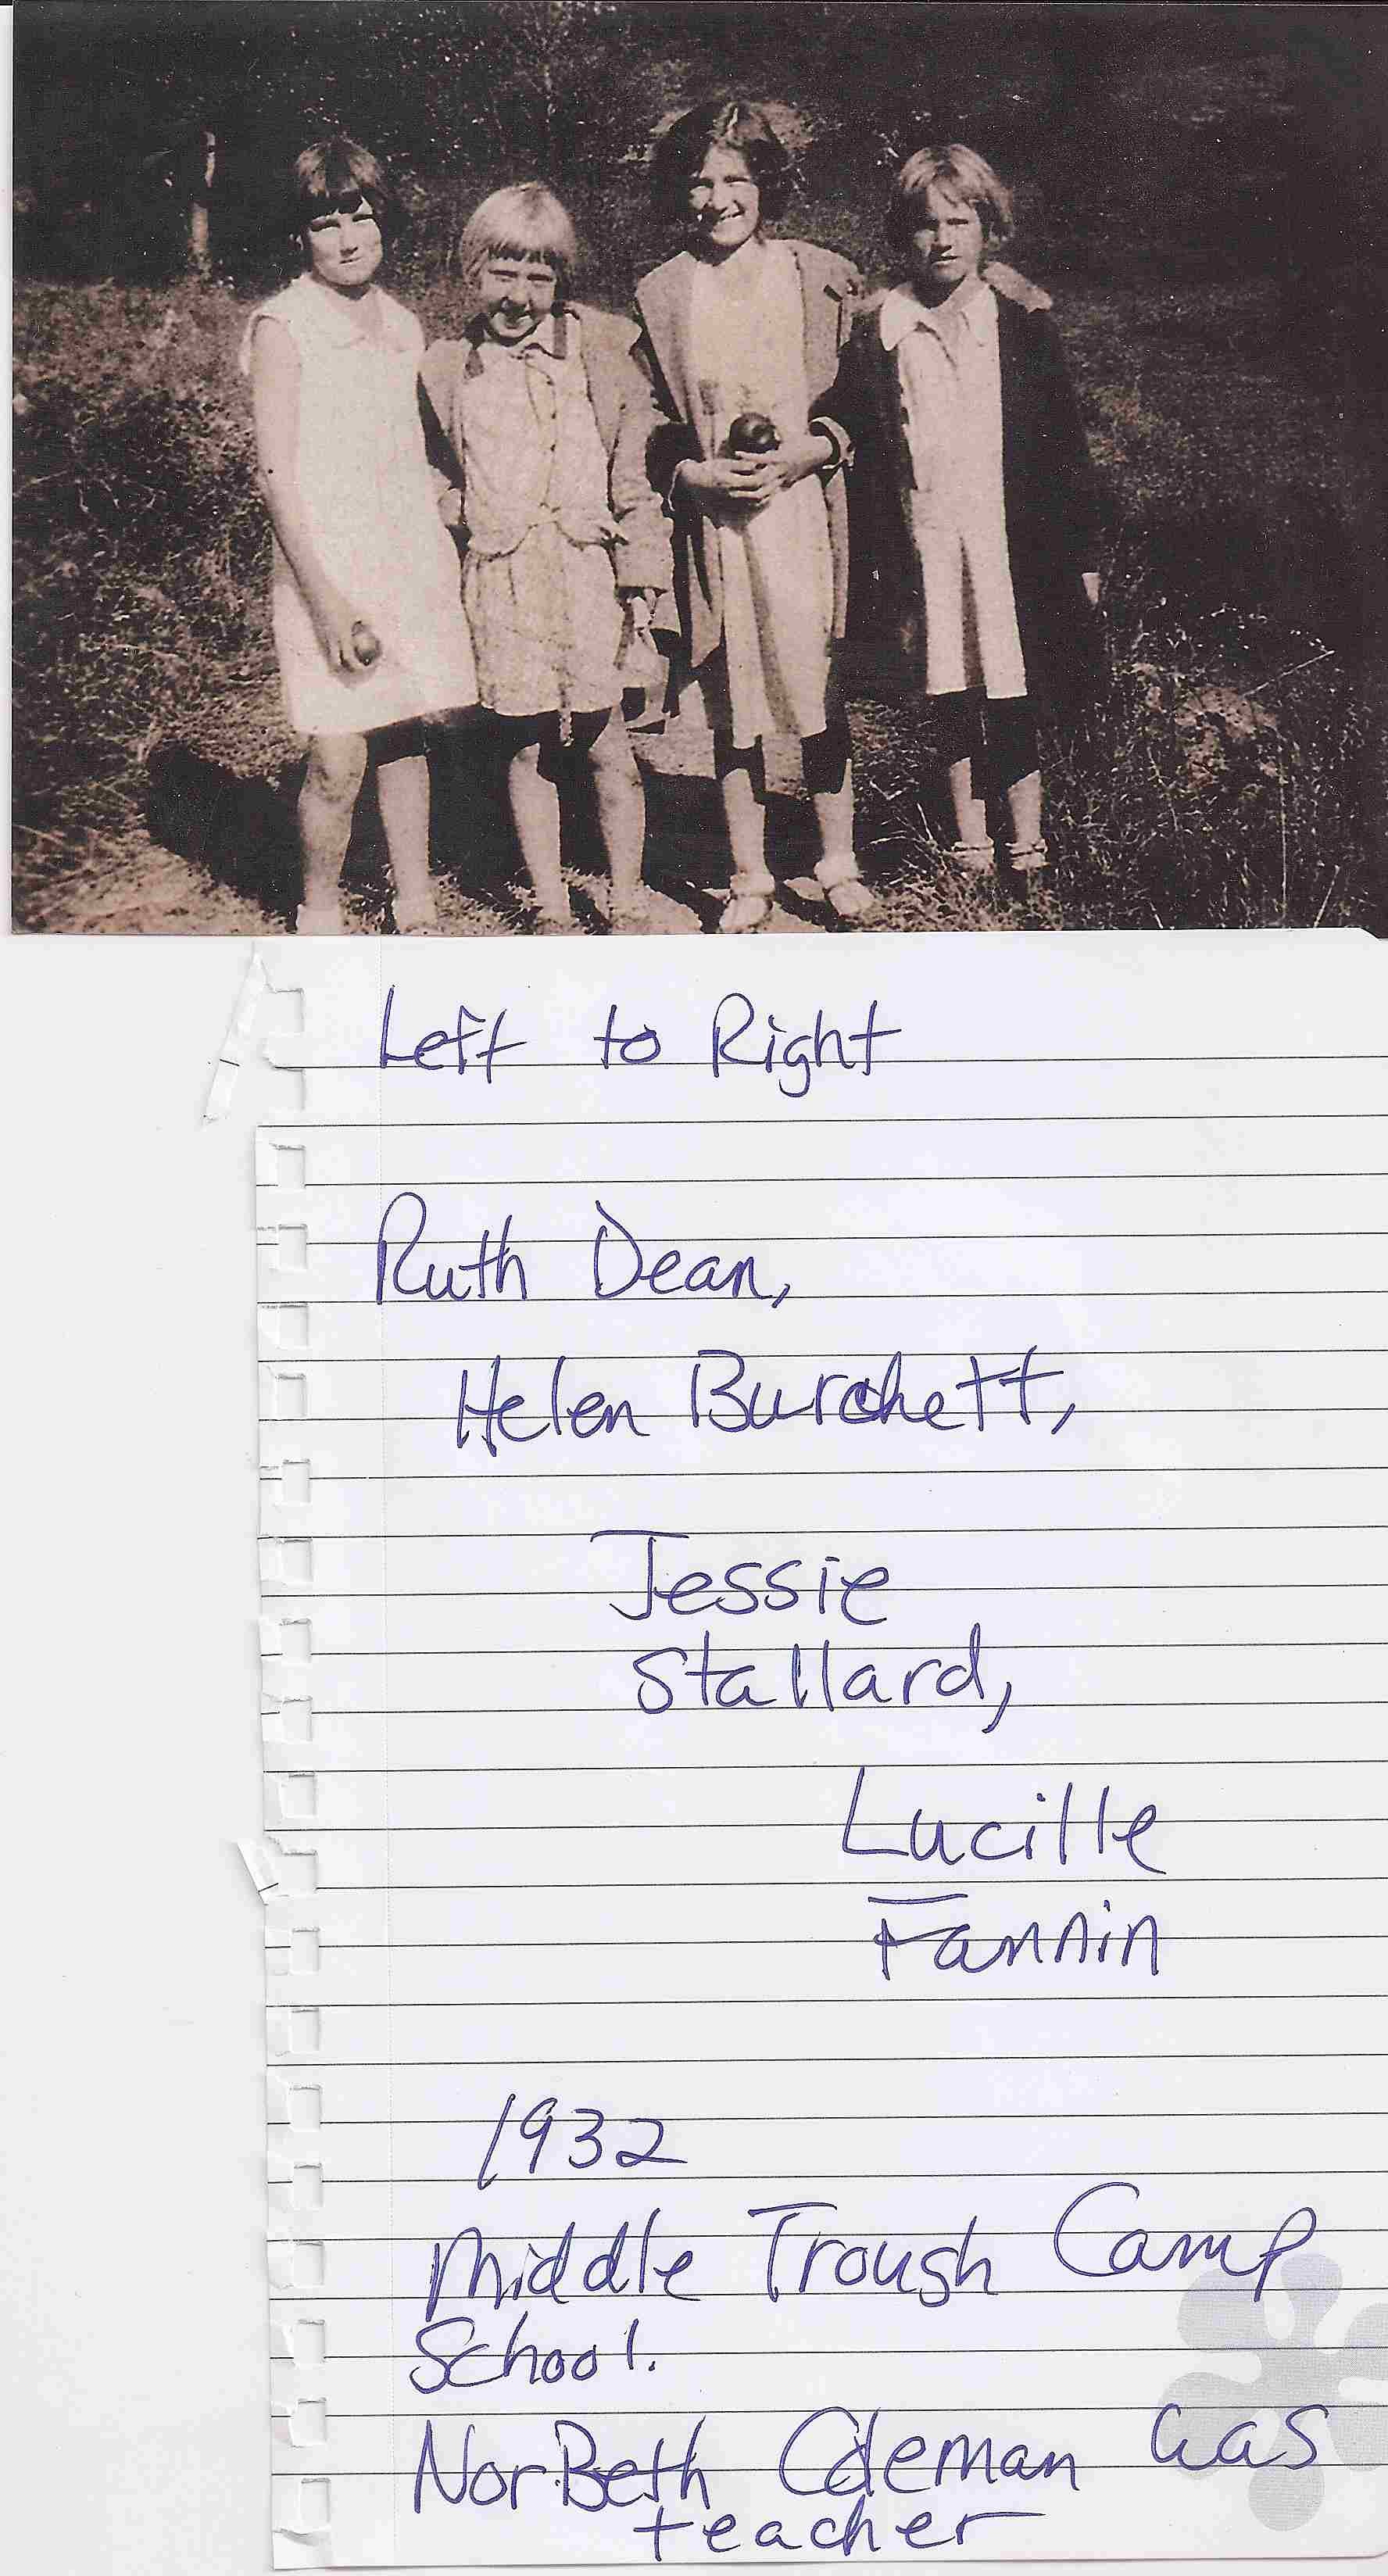 Left to Right
Ruth Dean,
Helen Burchett,
Jessie
Stallard,
Lucille
Fannin
1932
Middle Trough Camp
School.
NorBeth Coleman was
teacher